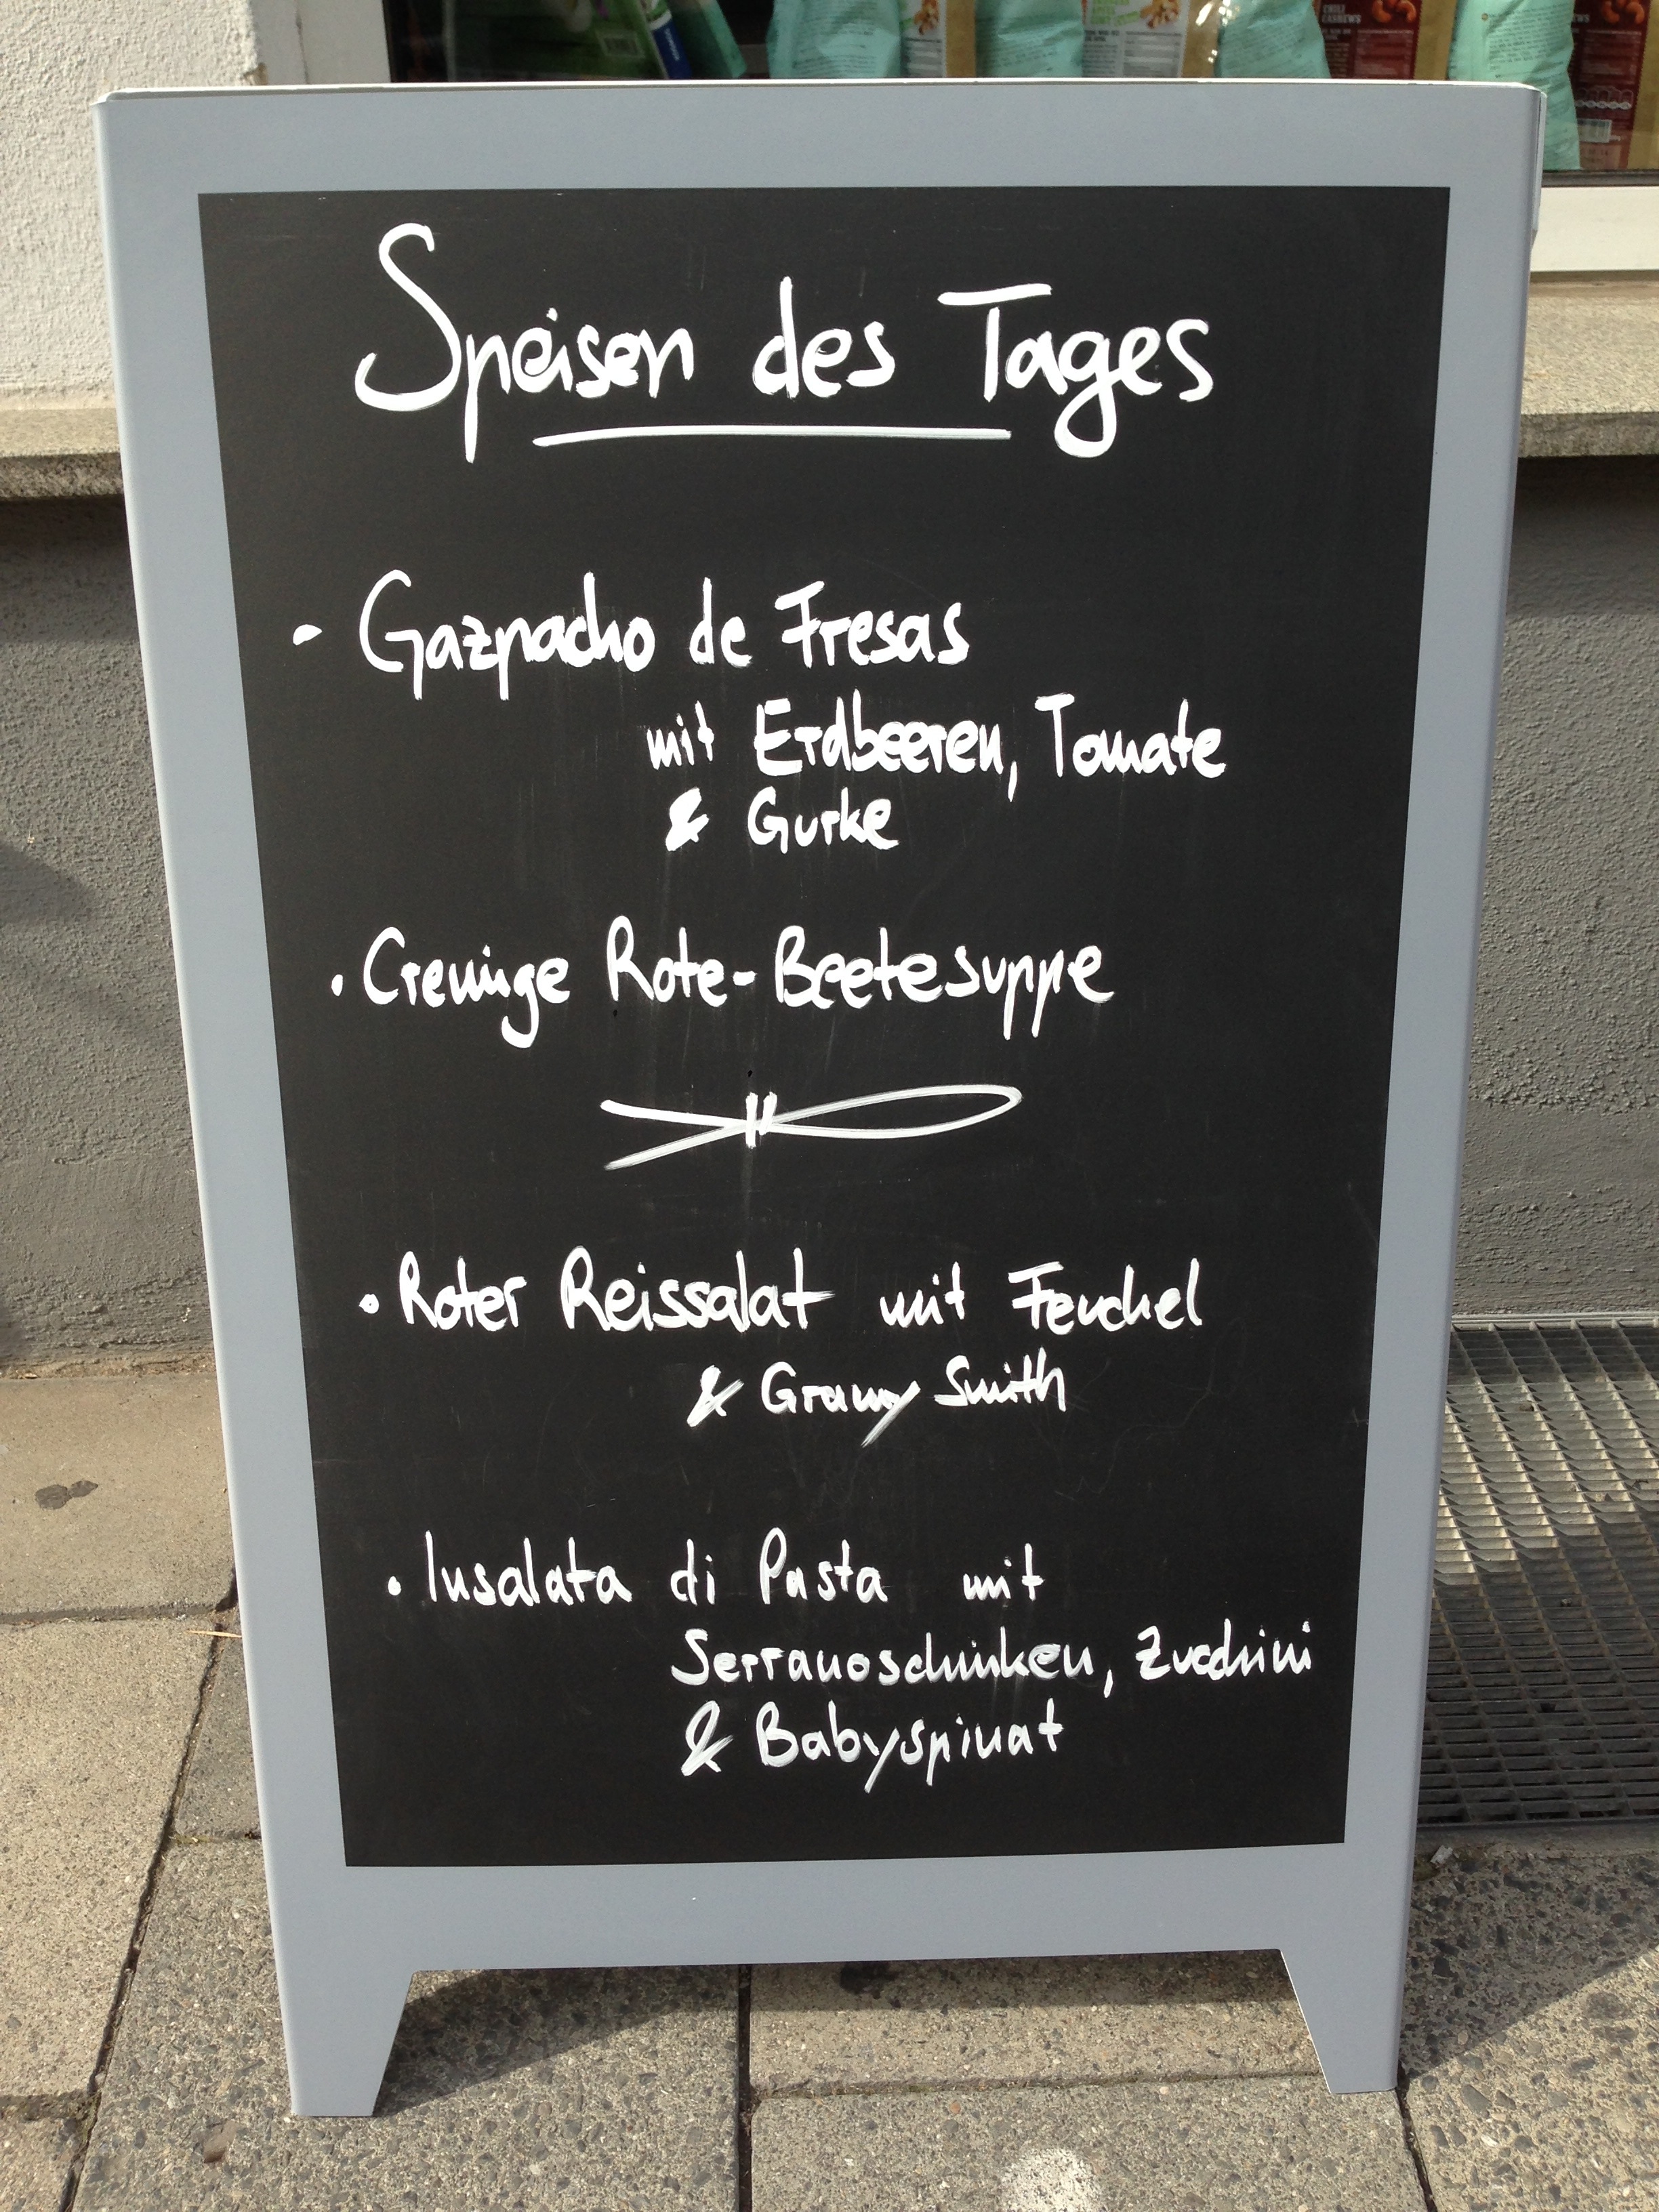 CHILI
CASHEWS
Speisen des Tages
· Gazpacho de Fresas
mit Erdbeeren, Tomate
& Gurke
· Cremige Rote-Beetesuppe
· Roter Reissalat mit Fenchel
& Granny Smith
· Insalata di Pasta mit
Serranoschinken, Zucchini
& Babyspinat